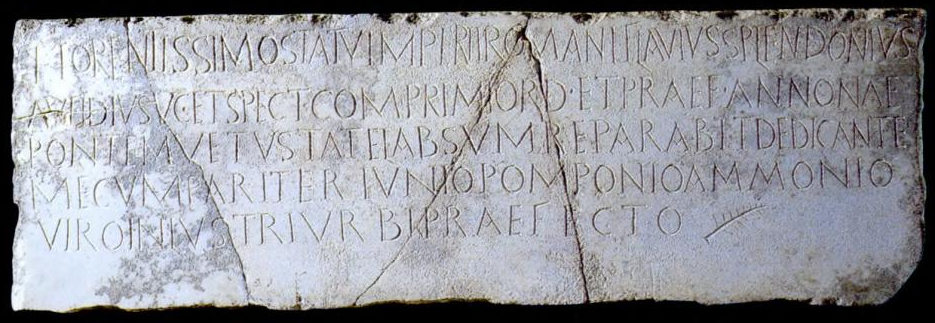 FLORENTISSIMO STATV IMPERI ROMANI FLAVIVS SPLENDONIVS
AVFIDIVS V·C·ET SPECT·COM·PRIMI ORD·ET PRAEF·ANNONAE
PONTEM VETVSTATE ABSVM REPARABIT DEDICANTE
MECVM PARITER IVNIO POMPONIO AMMONIO
VIRO INLVSTRI VRBI PRAEFECTO